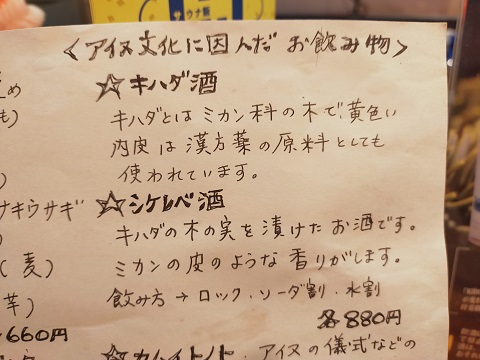 <アイヌ文化に因んだ お飲み物>
☆キハダ酒
キハダとは ミカン科の木で、黄色い
内皮は漢方薬の原料としても
使われています。
☆シケレペ酒
キハダの木の実を漬けたお酒です。
ミカンの皮のような香りがします。
飲み方→ロック・ソーダ割・水割
各880円
☆カムイトノト・アイヌの儀式などの
も)
ナキウサギ
(麦)
芋)
660円